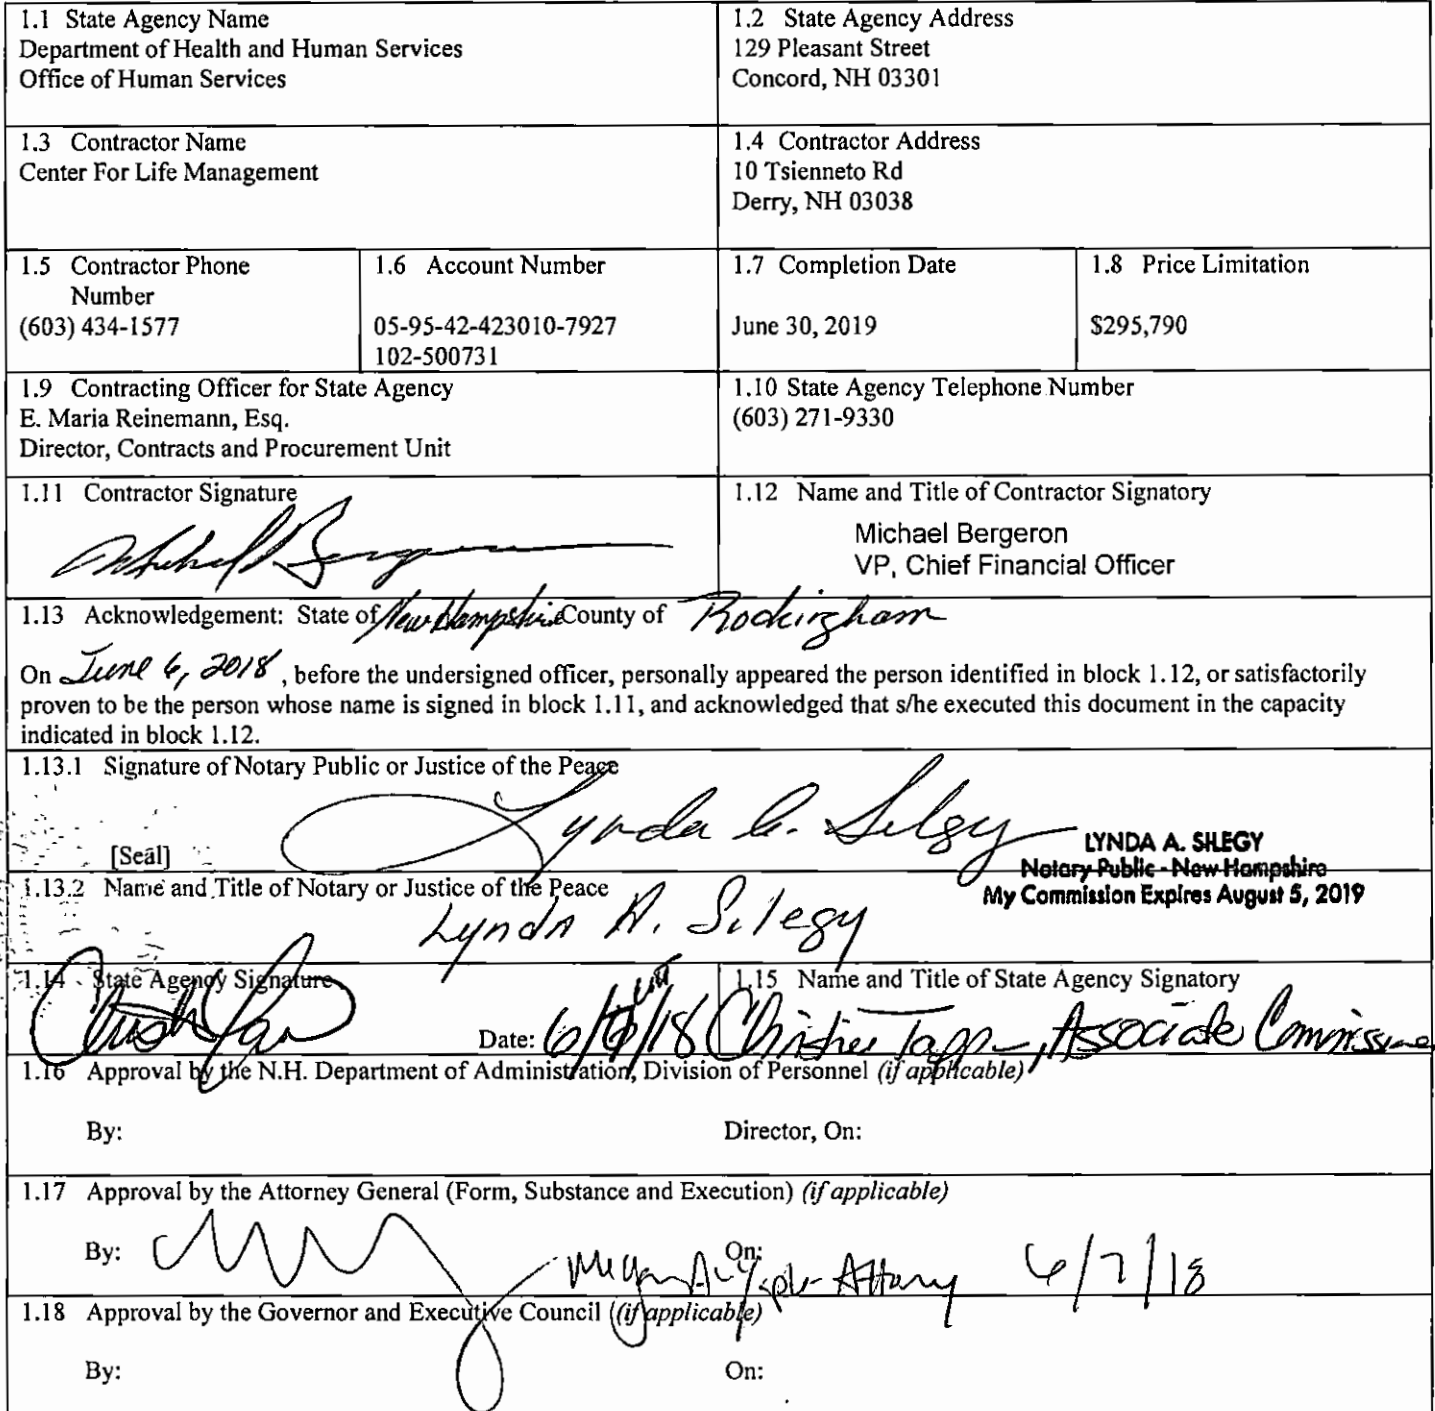 1.1 State Agency Name
Department of Health and Human Services
Office of Human Services
1.2 State Agency Address
129 Pleasant Street
Concord, NH 03301
1.3 Contractor Name
Center For Life Management
1.4 Contractor Address
10 Tsienneto Rd
Derry, NH 03038
1.5 Contractor Phone
Number
(603) 434-1577
1.6 Account Number
05-95-42-423010-7927
102-500731
1.7 Completion Date
June 30, 2019
1.8 Price Limitation
$295,790
1.9 Contracting Officer for State Agency
E. Maria Reinemann, Esq.
Director, Contracts and Procurement Unit
1.10 State Agency Telephone Number
(603) 271-9330
1.11 Contractor Signature
1.12 Name and Title of Contractor Signatory
Michael Bergeron
VP, Chief Financial Officer
1.13 Acknowledgement: State of New Hampshire County of Rockingham
On June 6, 2018, before the undersigned officer, personally appeared the person identified in block 1.12, or satisfactorily
proven to be the person whose name is signed in block 1.11, and acknowledged that s/he executed this document in the capacity
indicated in block 1.12.
1.13.1 Signature of Notary Public or Justice of the Peace
Lynda A. Silegy
[Seal]
LYNDA A. SILEGY
Notary Public - New Hampshire
My Commission Expires August 5, 2019
1.13.2 Name and Title of Notary or Justice of the Peace
Lynda A. Silegy
1.14 State Agency Signature
Date:
1.15 Name and Title of State Agency Signatory
Christine Tappan, Associate Commissioner
1.16 Approval by the N.H. Department of Administration, Division of Personnel (if applicable)
By:
Director, On:
1.17 Approval by the Attorney General (Form, Substance and Execution) (if applicable)
By:
On: 6/7/18
1.18 Approval by the Governor and Executive Council ((if applicable)
By:
On: